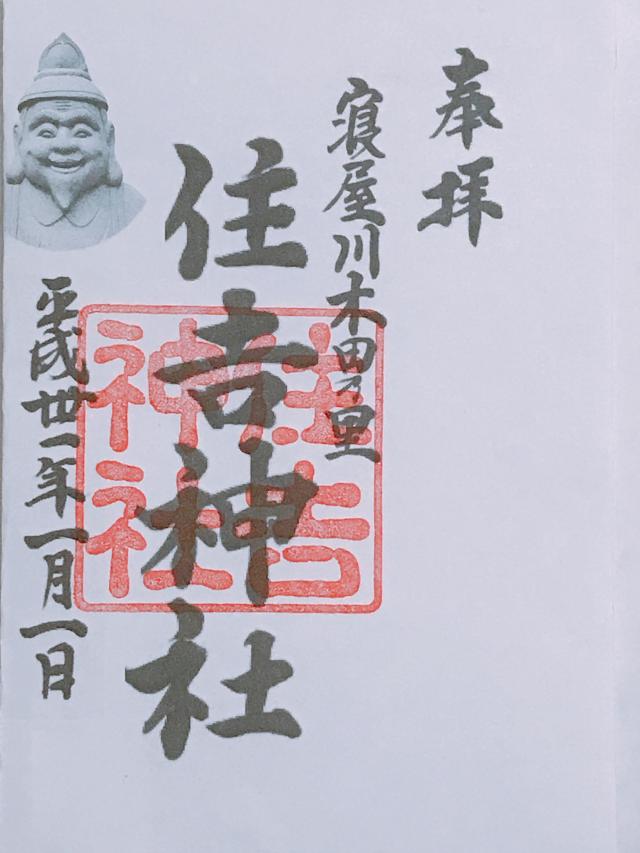 奉拝
寝屋川木田乃里
住吉神社
住吉
神社
平成卅一年一月一日